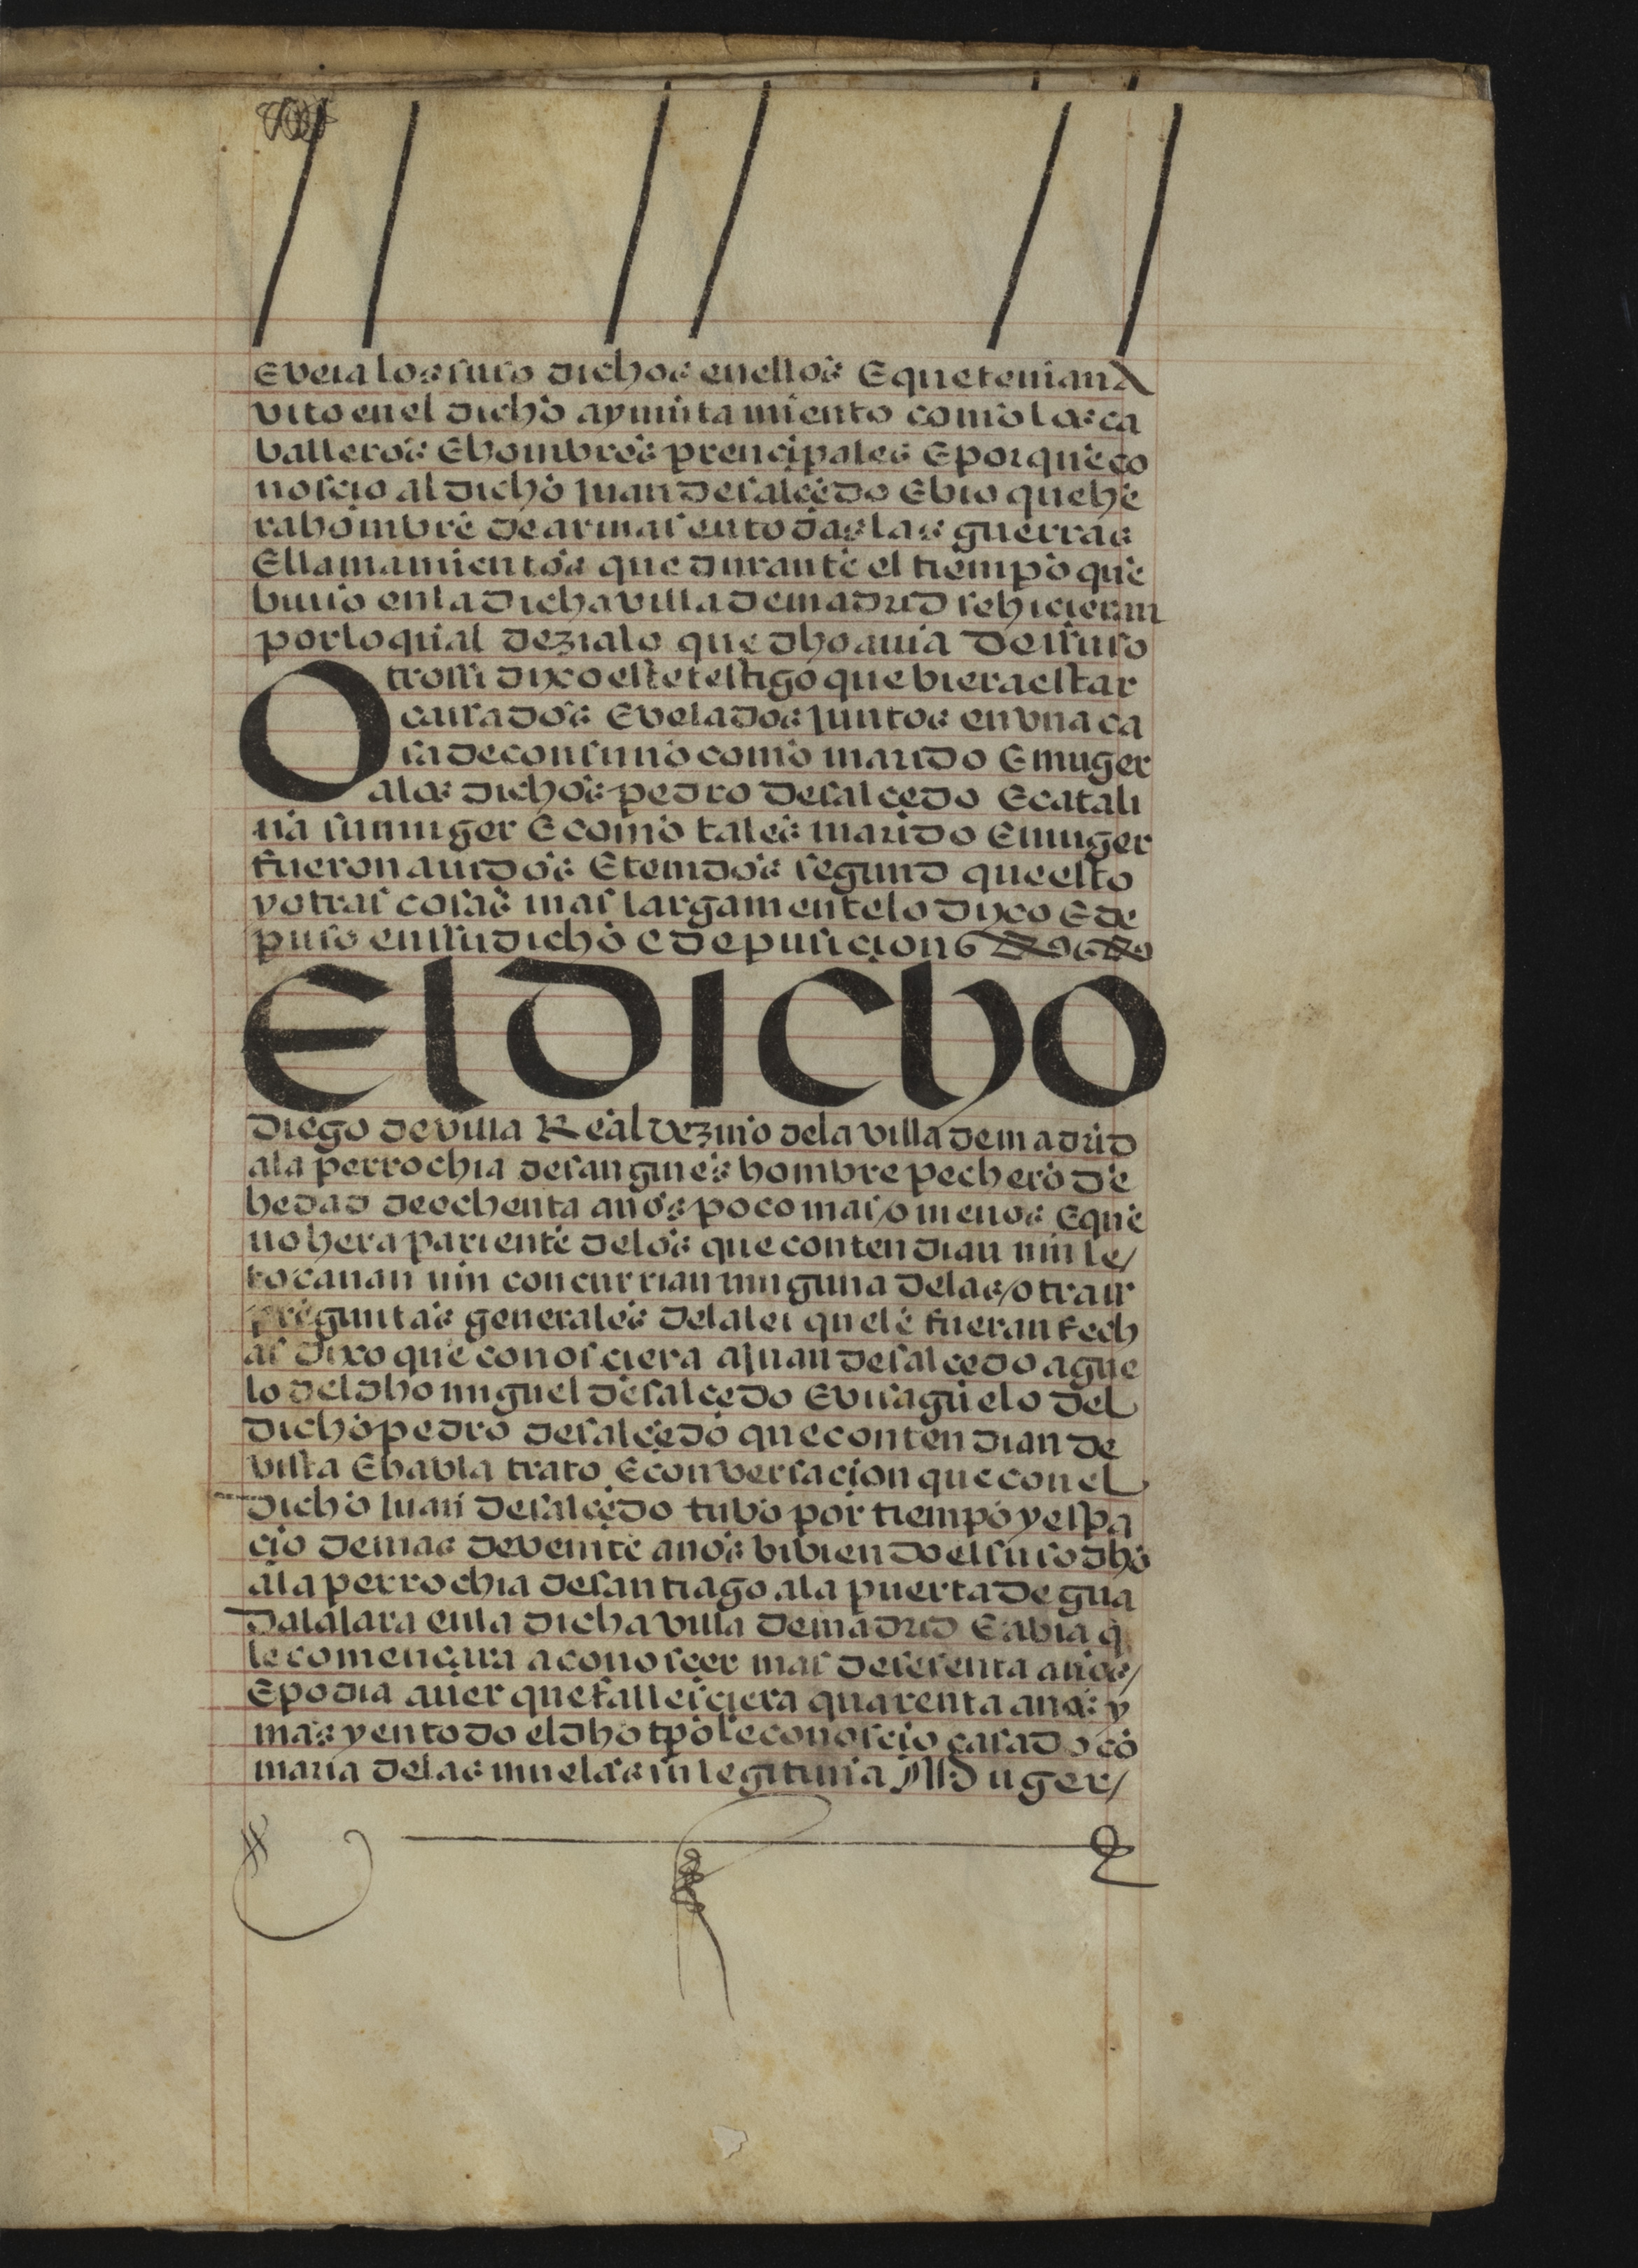 E veia los suso dichos en ellos E que tenian
voto en el dicho ayuntamiento como los ca
balleros E hombres prencipales E porque co
noscio al dicho Juan de salçedo E bio que he
ra hombre de armas en todas las guerras
E llamamientos que durante el tiempo que
biuio en la dicha villa de madrid se hicieran
por lo qual dezia lo que dho auia De issuso
Otrossi dixo este testigo que biera estar
cassados E velados Juntos en vna ca
sa de consuno como marido E muger
a los dichos pedro De salçedo E catali
na su muger E como tales marido E muger
fueron auidos E tenidos segund que esto
y otras cosas mas largamente lo dixo E de
puso en ssu dicho e depusicion
El DICHO
Diego de villa Real vezino de la villa de madrid
a la perrochia de san gines hombre pechero de
hedad de ochenta anos poco mas/o menos E que
no hera pariente de los que contendian nin le/
tocauan nin concurrian ninguna de las/otras
preguntas generales De la lei que le fueran fech
as dixo que conosciera a Juan de salcedo ague
lo del dho miguel de salcedo E visaguelo del
dicho pedro de salçedo que contendian de
vista E habla trato E conversacion que con el
dicho Juan de salcedo tubo por tiempo y espa
cio de mas de veinte anos bibiendo el suso dho
a la perrochia de santiago a la puerta De gua
dalalara en la dicha villa de madrid E abia q
le començara a conoscer mas de sesenta anos/
E podia auer que fallesciera quarenta anos y
mas y en todo el dho tpo le conoscio casado co
maria de las muelas su legitima Muger/